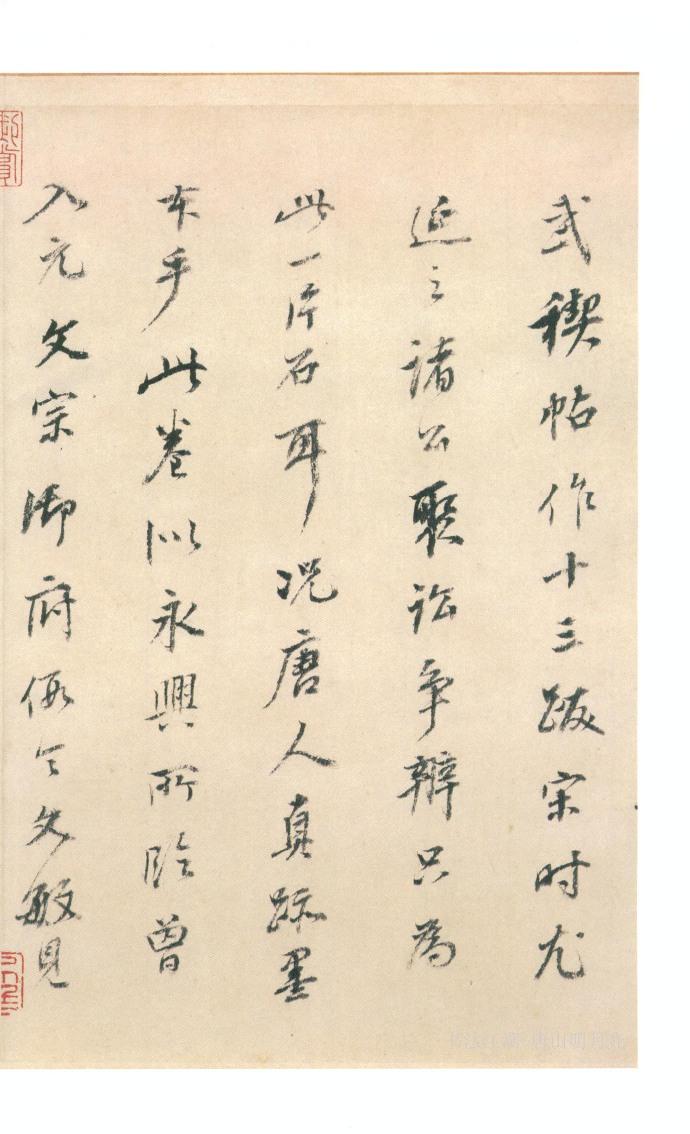 武禊帖作十三跋宋时尤
延之诸公聚讼争辨只为
此一片石耳况唐人真迹墨
本乎此卷似永興所临曾
入元文宗御府假令文敏見